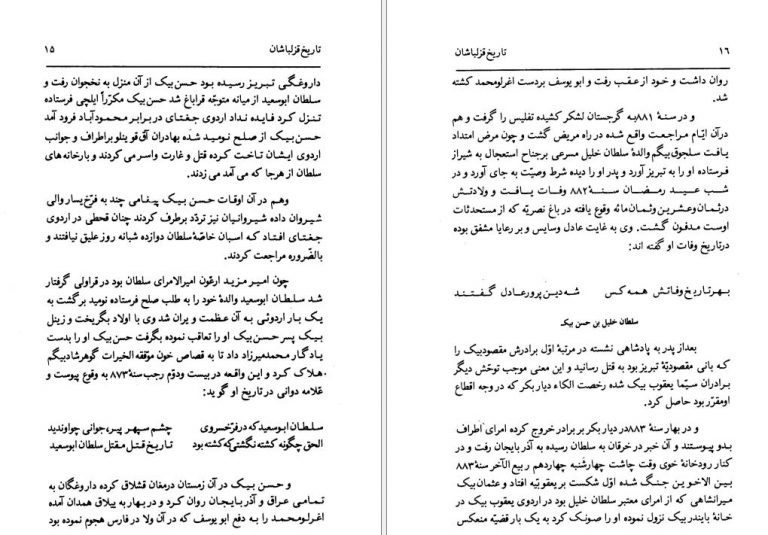 تاریخ قزلباشان ۱۵
داروغگی تبریز رسیده بود حسن بیک از آن منزل به نخجوان رفت و
سلطان ابوسعید از میانه متوجّه قراباغ شد حسن بیک مکرّراً ایلچی فرستاده
تنزل کرد فایده نداد اردوی جغتای در برابر محمود آباد فرود آمد
حسن بیک از صلح نومید شده بهادران آق قوینلو بر اطراف و جوانب
اردوی ایشان تاخت کرده قتل و غارت و اسر می کردند و بارخانه های
سلطان از هرجا که می آمد می زدند.
وهم در آن اوقات حسن بیک پیغامی چند به فرّخ یسار والی
شیروان داده شیروانیان نیز تردّد برطرف کردند چنان قحطی در اردوی
جغتای افتاد که اسبان خاصّۀ سلطان دوازده شبانه روز علیق نیافتند و
بالضّروره مراجعت کردند.
چون امیر مزید ارغون امیرالامرای سلطان بود در قراولی گرفتار
شد سلطان ابوسعید والدۀ خود را به طلب صلح فرستاده نومید برگشت به
یک بار اردوئی به آن عظمت ویران شد وی با اولاد بگریخت و زینل
بیک پسر حسن بیک او را تعاقب نموده بگرفت حسن بیک او را بدست
یادگار محمد میرزا داد تا به قصاص خون موّفقه الخیرات گوهرشاد بیگم
هلاک کرد و این واقعه در بیست و دوّم رجب سنۀ ۸۷۳ به وقوع پیوست و
علامه دوانی در تاریخ او گوید:
سلطان ابوسعید که در فرّ خسروی چشم سپهر پیر، جوانی چو او ندید
الحق چگونه کشته نگشتی که کشته بود تاریخ قتل مقتل سلطان ابوسعید
و حسن بیک در آن زمستان در مغان قشلاق کرده داروغگان به
تمامی عراق و آذربایجان روان کرد و در بهار به ییلاق همدان آمده
اغرلو محمد را به دفع ابو یوسف که در آن ولا در فارس هجوم نموده بود
۱۶ تاریخ قزلباشان
روان داشت و خود از عقب رفت و ابو یوسف بردست اغرلو محمد کشته
شد.
و در سنۀ ۸۸۱ به گرجستان لشکر کشیده تفلیس را گرفت و هم
در آن ایّام مراجعت واقع شده در راه مریض گشت و چون مرض امتداد
یافت سلجوق بیگم والدۀ سلطان خلیل مسرعی بر جناح استعجال به شیراز
فرستاده او را به تبریز آورد و پدر او را دیده شرط وصیّت به جای آورد و در
شب عید رمضان سنۀ ۸۸۲ وفات یافت و ولادتش
در ثمان و عشرین و ثمان مائه وقوع یافته در باغ نصریّه که از مستحدثات
اوست مدفون گشت. وی به غایت عادل وسایس و بر رعایا مشفق بوده
در تاریخ وفات او گفته اند:
بهر تاریخ وفاتش همه کس شه دین پرور عادل گفتند
سلطان خلیل بن حسن بیک
بعد از پدر به پادشاهی نشسته در مرتبۀ اوّل برادرش مقصود بیک را
که بانی مقصودیّۀ تبریز بود به قتل رسانید و این معنی موجب توحّش دیگر
برادران سیّما یعقوب بیک شده رخصت الکاء دیار بکر که در وجه اقطاع
او مقرّر بود حاصل کرد.
و در بهار سنۀ ۸۸۳ در دیار بکر بر برادر خروج کرده امرای اطراف
بدو پیوستند و آن خبر در خرقان به سلطان رسیده به آذربایجان رفت و در
کنار رودخانۀ خوی وقت چاشت چهارشنبه چهاردهم ربیع الآخر سنۀ ۸۸۳
بین الاخوین جنگ شده اوّل شکست بر یعقوبیّه افتاد و عثمان بیک
میرانشاهی که از امرای معتبر سلطان خلیل بود در اردوی یعقوب بیک در
خانۀ بایندر بیک نزول نموده او را صونک کرد به یک بار قضیّه منعکس